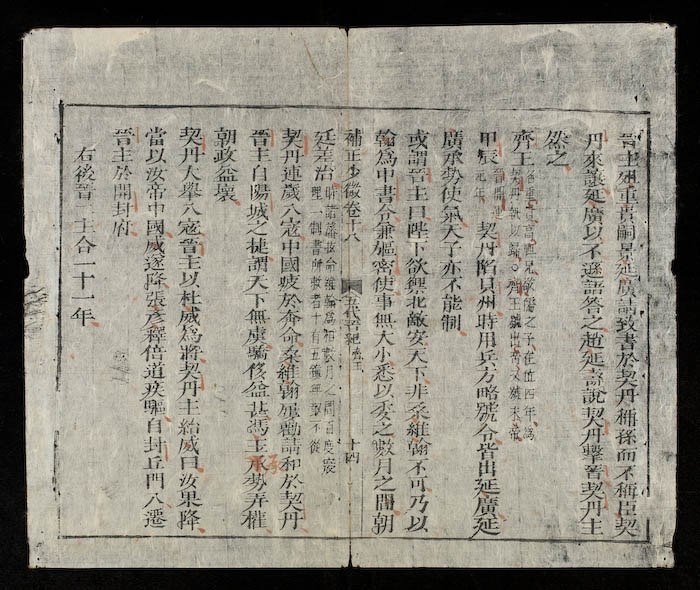 晉主延重貴嗣景延廣請致書於契丹稱孫而不稱臣契
丹來讓延廣以不遜語答之趙延壽說契丹擊晉契丹主
然之
齊王名重貴高祖兄敬儒之子在位四年為
契丹所以歸
甲辰晉開運元年契丹陷貝州時用兵方略號令皆出延廣延
廣承勢使氣天子亦不能制
或謂晉主曰陛下欲禦北敵安天下非桑維翰不可乃以
翰為中書令兼樞密使事無大小悉以委之數月之間朝
補正少微卷十八 五代晉紀齊王 十四
廷差治
契丹連歲入寇中國疲於奔命桑維翰屢勸請和於契丹
晉主自陽城之捷謂天下無虞驕侈益甚馮玉承勢弄權
承
朝政益壞
契丹大舉入寇晉主以杜威為將契丹主紿威曰汝果降
當以汝帝中國威遂降張彥澤倍道疾驅自封丘門入遷
晉主於開封府
右後晉二主合一十一年